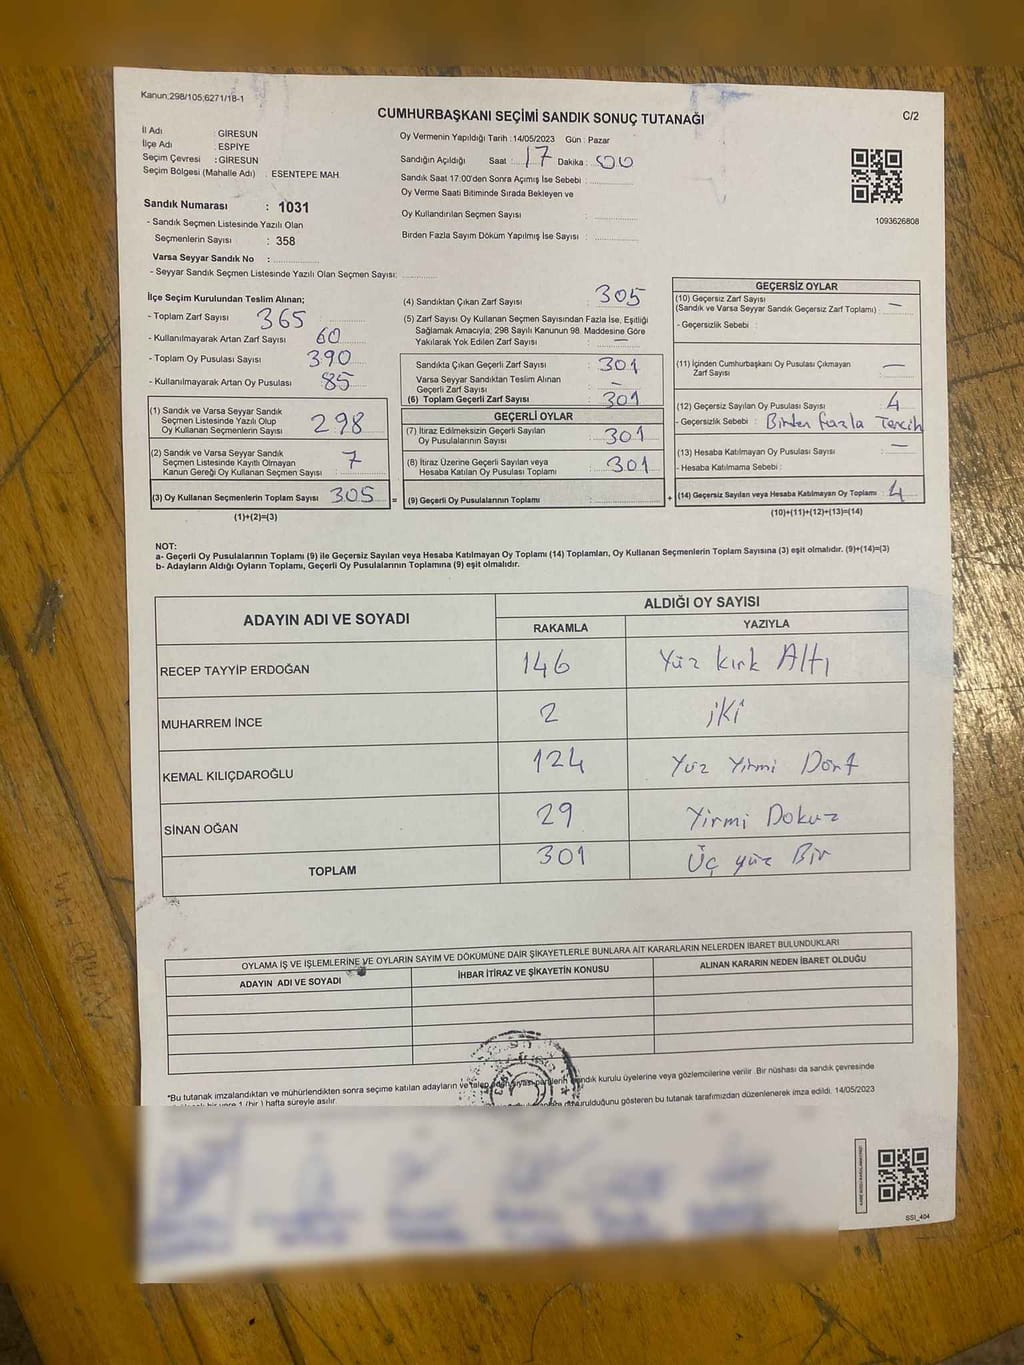 Kanun;298/105;6271/18-1
CUMHURBAŞKANI SEÇİMİ SANDIK SONUÇ TUTANAĞI
C/2
İl Adı : GİRESUN
İlçe Adı : ESPİYE
Seçim Çevresi : GİRESUN
Seçim Bölgesi (Mahalle Adı) : ESENTEPE MAH.
Oy Vermenin Yapıldığı Tarih :14/05/2023 Gün : Pazar
Sandığın Açıldığı Saat : 17 Dakika : 00
Sandık Saat 17:00'den Sonra Açımış İse Sebebi :
Oy Verme Saati Bitiminde Sırada Bekleyen ve
Oy Kullandırılan Seçmen Sayısı :
Birden Fazla Sayım Döküm Yapılmış İse Sayısı :
1093626808
Sandık Numarası : 1031
- Sandık Seçmen Listesinde Yazılı Olan
Seçmenlerin Sayısı : 358
Varsa Seyyar Sandık No :
- Seyyar Sandık Seçmen Listesinde Yazılı Olan Seçmen Sayısı:
İlçe Seçim Kurulundan Teslim Alınan;
- Toplam Zarf Sayısı : 365
- Kullanılmayarak Artan Zarf Sayısı : 60
- Toplam Oy Pusulası Sayısı : 390
- Kullanılmayarak Artan Oy Pusulası : 85
(1) Sandık ve Varsa Seyyar Sandık
Seçmen Listesinde Yazılı Olup
Oy Kullanan Seçmenlerin Sayısı : 298
(2) Sandık ve Varsa Seyyar Sandık
Seçmen Listesinde Kayıtlı Olmayan
Kanun Gereği Oy Kullanan Seçmen Sayısı : 7
(3) Oy Kullanan Seçmenlerin Toplam Sayısı : 305 =
(1)+(2)=(3)
(4) Sandıktan Çıkan Zarf Sayısı : 305
(5) Zarf Sayısı Oy Kullanan Seçmen Sayısından Fazla İse, Eşitliği
Sağlamak Amacıyla; 298 Sayılı Kanunun 98. Maddesine Göre
Yakılarak Yok Edilen Zarf Sayısı : —
Sandıkta Çıkan Geçerli Zarf Sayısı : 301
Varsa Seyyar Sandıktan Teslim Alınan
Geçerli Zarf Sayısı : -
(6) Toplam Geçerli Zarf Sayısı : 301
GEÇERLİ OYLAR
(7) İtiraz Edilmeksizin Geçerli Sayılan
Oy Pusulalarının Sayısı : 301
(8) İtiraz Üzerine Geçerli Sayılan veya
Hesaba Katılan Oy Pusulası Toplamı : 301
(9) Geçerli Oy Pusulalarının Toplamı : +
GEÇERSİZ OYLAR
(10) Geçersiz Zarf Sayısı
(Sandık ve Varsa Seyyar Sandık Geçersiz Zarf Toplamı) : —
- Geçersizlik Sebebi :
(11) İçinden Cumhurbaşkanı Oy Pusulası Çıkmayan
Zarf Sayısı : —
(12) Geçersiz Sayılan Oy Pusulası Sayısı : 4
- Geçersizlik Sebebi : Birden fazla Tercih
(13) Hesaba Katılmayan Oy Pusulası Sayısı : —
- Hesaba Katılmama Sebebi :
(14) Geçersiz Sayılan veya Hesaba Katılmayan Oy Toplamı : 4
(10)+(11)+(12)+(13)=(14)
NOT:
a- Geçerli Oy Pusulalarının Toplamı (9) ile Geçersiz Sayılan veya Hesaba Katılmayan Oy Toplamı (14) Toplamları, Oy Kullanan Seçmenlerin Toplam Sayısına (3) eşit olmalıdır. (9)+(14)=(3)
b- Adayların Aldığı Oyların Toplamı, Geçerli Oy Pusulalarının Toplamına (9) eşit olmalıdır.
ADAYIN ADI VE SOYADI ALDIĞI OY SAYISI
RAKAMLA YAZIYLA
RECEP TAYYİP ERDOĞAN 146 Yüz kırk Altı
MUHARREM İNCE 2 iki
KEMAL KILIÇDAROĞLU 124 Yüz Yirmi Dört
SİNAN OĞAN 29 Yirmi Dokuz
TOPLAM 301 Üç yüz Bir
OYLAMA İŞ VE İŞLEMLERİNE VE OYLARIN SAYIM VE DÖKÜMÜNE DAİR ŞİKAYETLERLE BUNLARA AİT KARARLARIN NELERDEN İBARET BULUNDUKLARI
ADAYIN ADI VE SOYADI İHBAR İTİRAZ VE ŞİKAYETİN KONUSU ALINAN KARARIN NEDEN İBARET OLDUĞU
*Bu tutanak imzalandıktan ve mühürlendikten sonra seçime katılan adayların ve talep eden siyasi partilerin sandık kurulu üyelerine veya gözlemcilerine verilir. Bir nüshası da sandık çevresinde
1 (bir) hafta süreyle asılır.
gösteren bu tutanak tarafımızdan düzenlenerek imza edildi. 14/05/2023
SSI_404